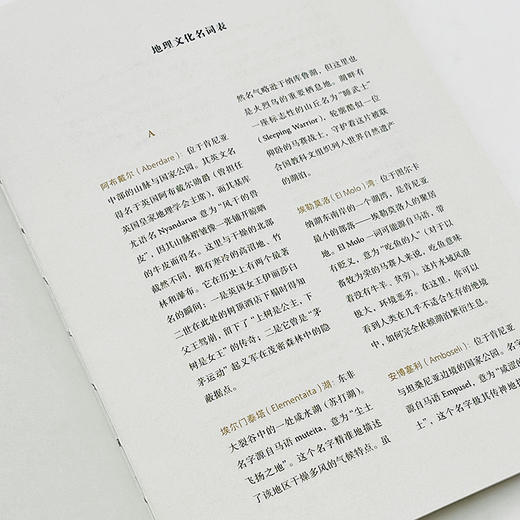 地理文化名词表
A
阿布戴尔（Aberdare）：位于肯尼亚
中部的山脉与国家公园。其英文名
得名于英国阿布戴尔勋爵（曾担任
英国皇家地理学会主席），而其基库
尤语名 Nyandarua 意为“风干的兽
皮”，因其山脉褶皱像一张铺开晾晒
的牛皮而得名。这里与干燥的北部
截然不同，拥有寒冷的高沼地、竹
林和瀑布。它在历史上有两个最著
名的瞬间：一是英国女王伊丽莎白
二世在此处的树顶酒店下榻时得知
父王驾崩，留下了“上树是公主，下
树是女王”的传奇；二是它曾是“茅
茅运动”起义军在茂密森林中的隐
蔽据点。
埃尔门泰塔（Elementaita）湖：东非
大裂谷中的一处咸水湖（苏打湖）。
名字源自马语 muteita，意为“尘土
飞扬之地”。这个名字精准地描述
了该地区干燥多风的气候特点。虽
然名气略逊于纳库鲁湖，但这里也
是火烈鸟的重要栖息地。湖畔有
一座标志性的山丘名为“睡武士”
(Sleeping Warrior)，轮廓酷似一位
仰卧的马赛战士，守护着这片被联
合国教科文组织列入世界自然遗产
的湖泊。
埃勒莫洛（El Molo）湾：位于图尔卡
纳湖东南岸的一个湖湾，是肯尼亚
最小的部落——埃勒莫洛人的聚居
地。El Molo 一词可能源自马语，带
有贬义，意为“吃鱼的人”（对于以
畜牧为荣的马赛人来说，吃鱼意味
着没有牛羊、贫穷）。这片水域风浪
极大，环境恶劣。在这里，你可以
看到人类在几乎不适合生存的绝境
中，如何完全依赖湖泊繁衍生息。
安博塞利（Amboseli）：位于肯尼亚
与坦桑尼亚边境的国家公园。名字
源自马语 Empusel，意为“咸湿的
”，这个名字极其传神地